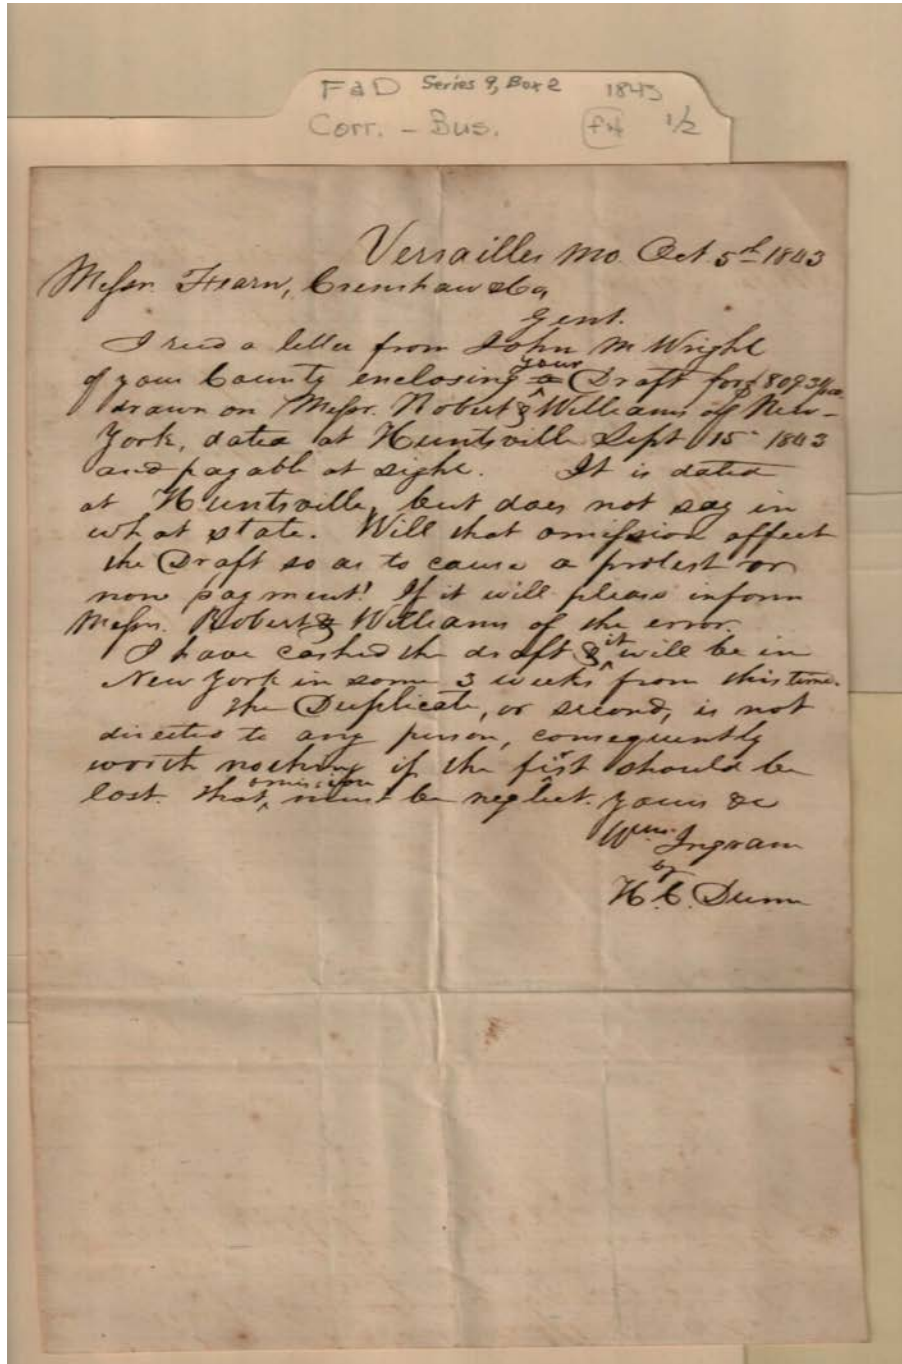 F & D Series 9, Box 2 1843
Corr. - Bus. 1/2
Versailles Mo. Oct. 5th 1843
Messr. Fearn, Crenshaw & Co,
Gent.
I recd a letter from John M Wright
your
of your County enclosing a Draft for
drawn on Messr. Robert & Williams of New-
York, dated at Huntsville Sept 15 1843
and payable at sight. It is dated
at Huntsville, but does not say in
what state. Will that omission affect
the Draft so as to cause a protest or
non payment? If it will please inform
Messrs. Robert & Williams of the error.
I have cashed the draft & it will be in
New York in some 3 weeks from this time.
The Duplicate, or second, is not
directed to any person, consequently
worth nothing if the first should be
omission
lost. that, must be neglect. Yours &c
Wm. Ingram
by
H. C. Dunn